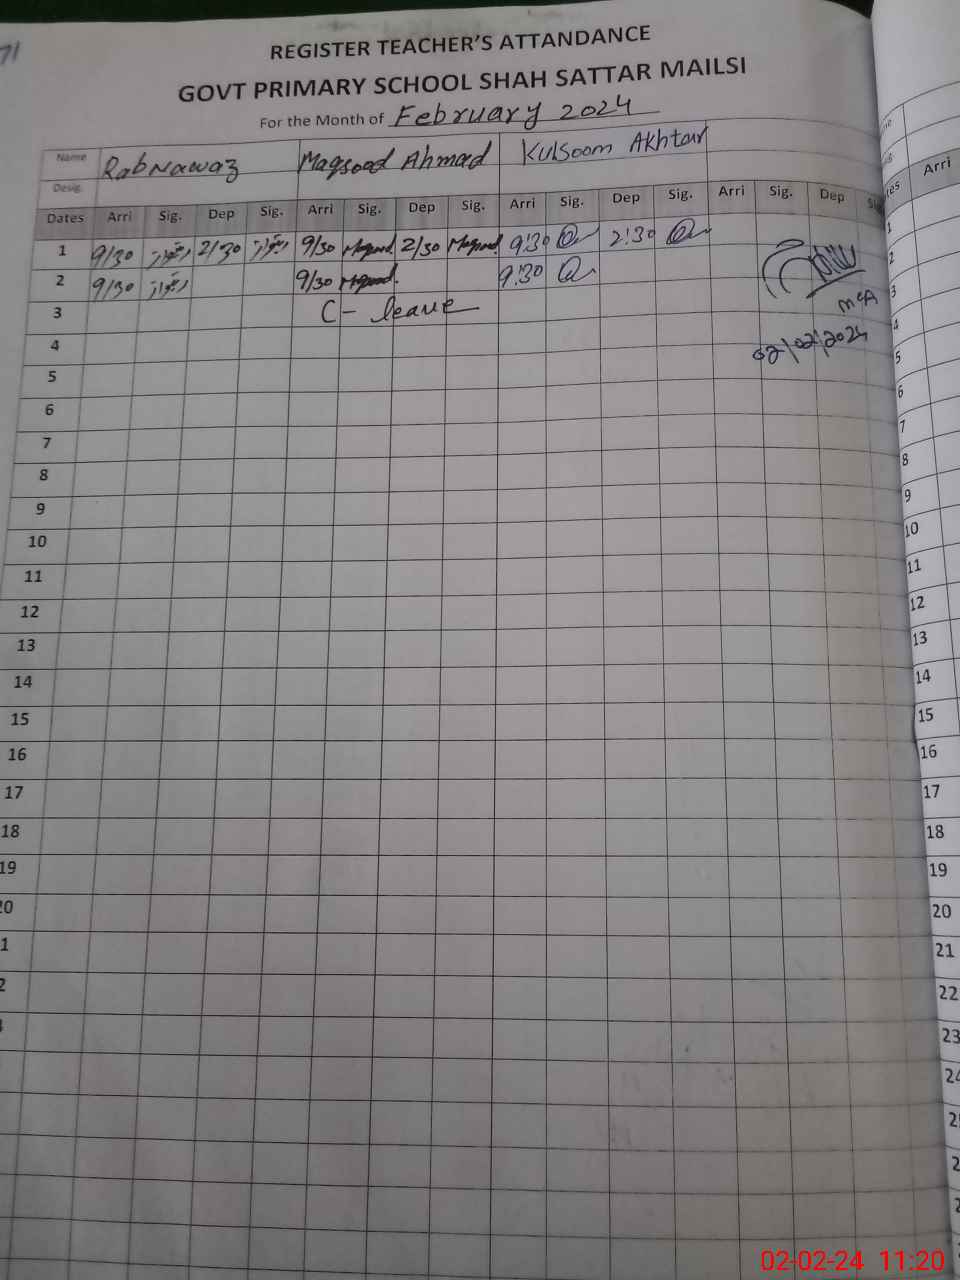 71
REGISTER TEACHER'S ATTANDANCE
GOVT PRIMARY SCHOOL SHAH SATTAR MAILSI
For the Month of February 2024
Name Rab Nawaz Maqsood Ahmad Kulsoom Akhtar
Desig.
Dates Arri Sig. Dep Sig. Arri Sig. Dep Sig. Arri Sig. Dep Sig. Arri Sig. Dep Sig
1 9/30 ربنواز 2/30 ربنواز 9/30 Maqsood 2/30 Maqsood 9:30 2:30
2 9/30 ربنواز 9/30 Maqsood 9:30
3 C- leave
MCA
02/02/2024
4
5
6
7
8
9
10
11
12
13
14
15
16
17
18
19
20
1
2
Arri
1
2
3
4
5
6
7
8
9
10
11
12
13
14
15
16
17
18
19
20
21
22
23
24
02-02-24 11:20